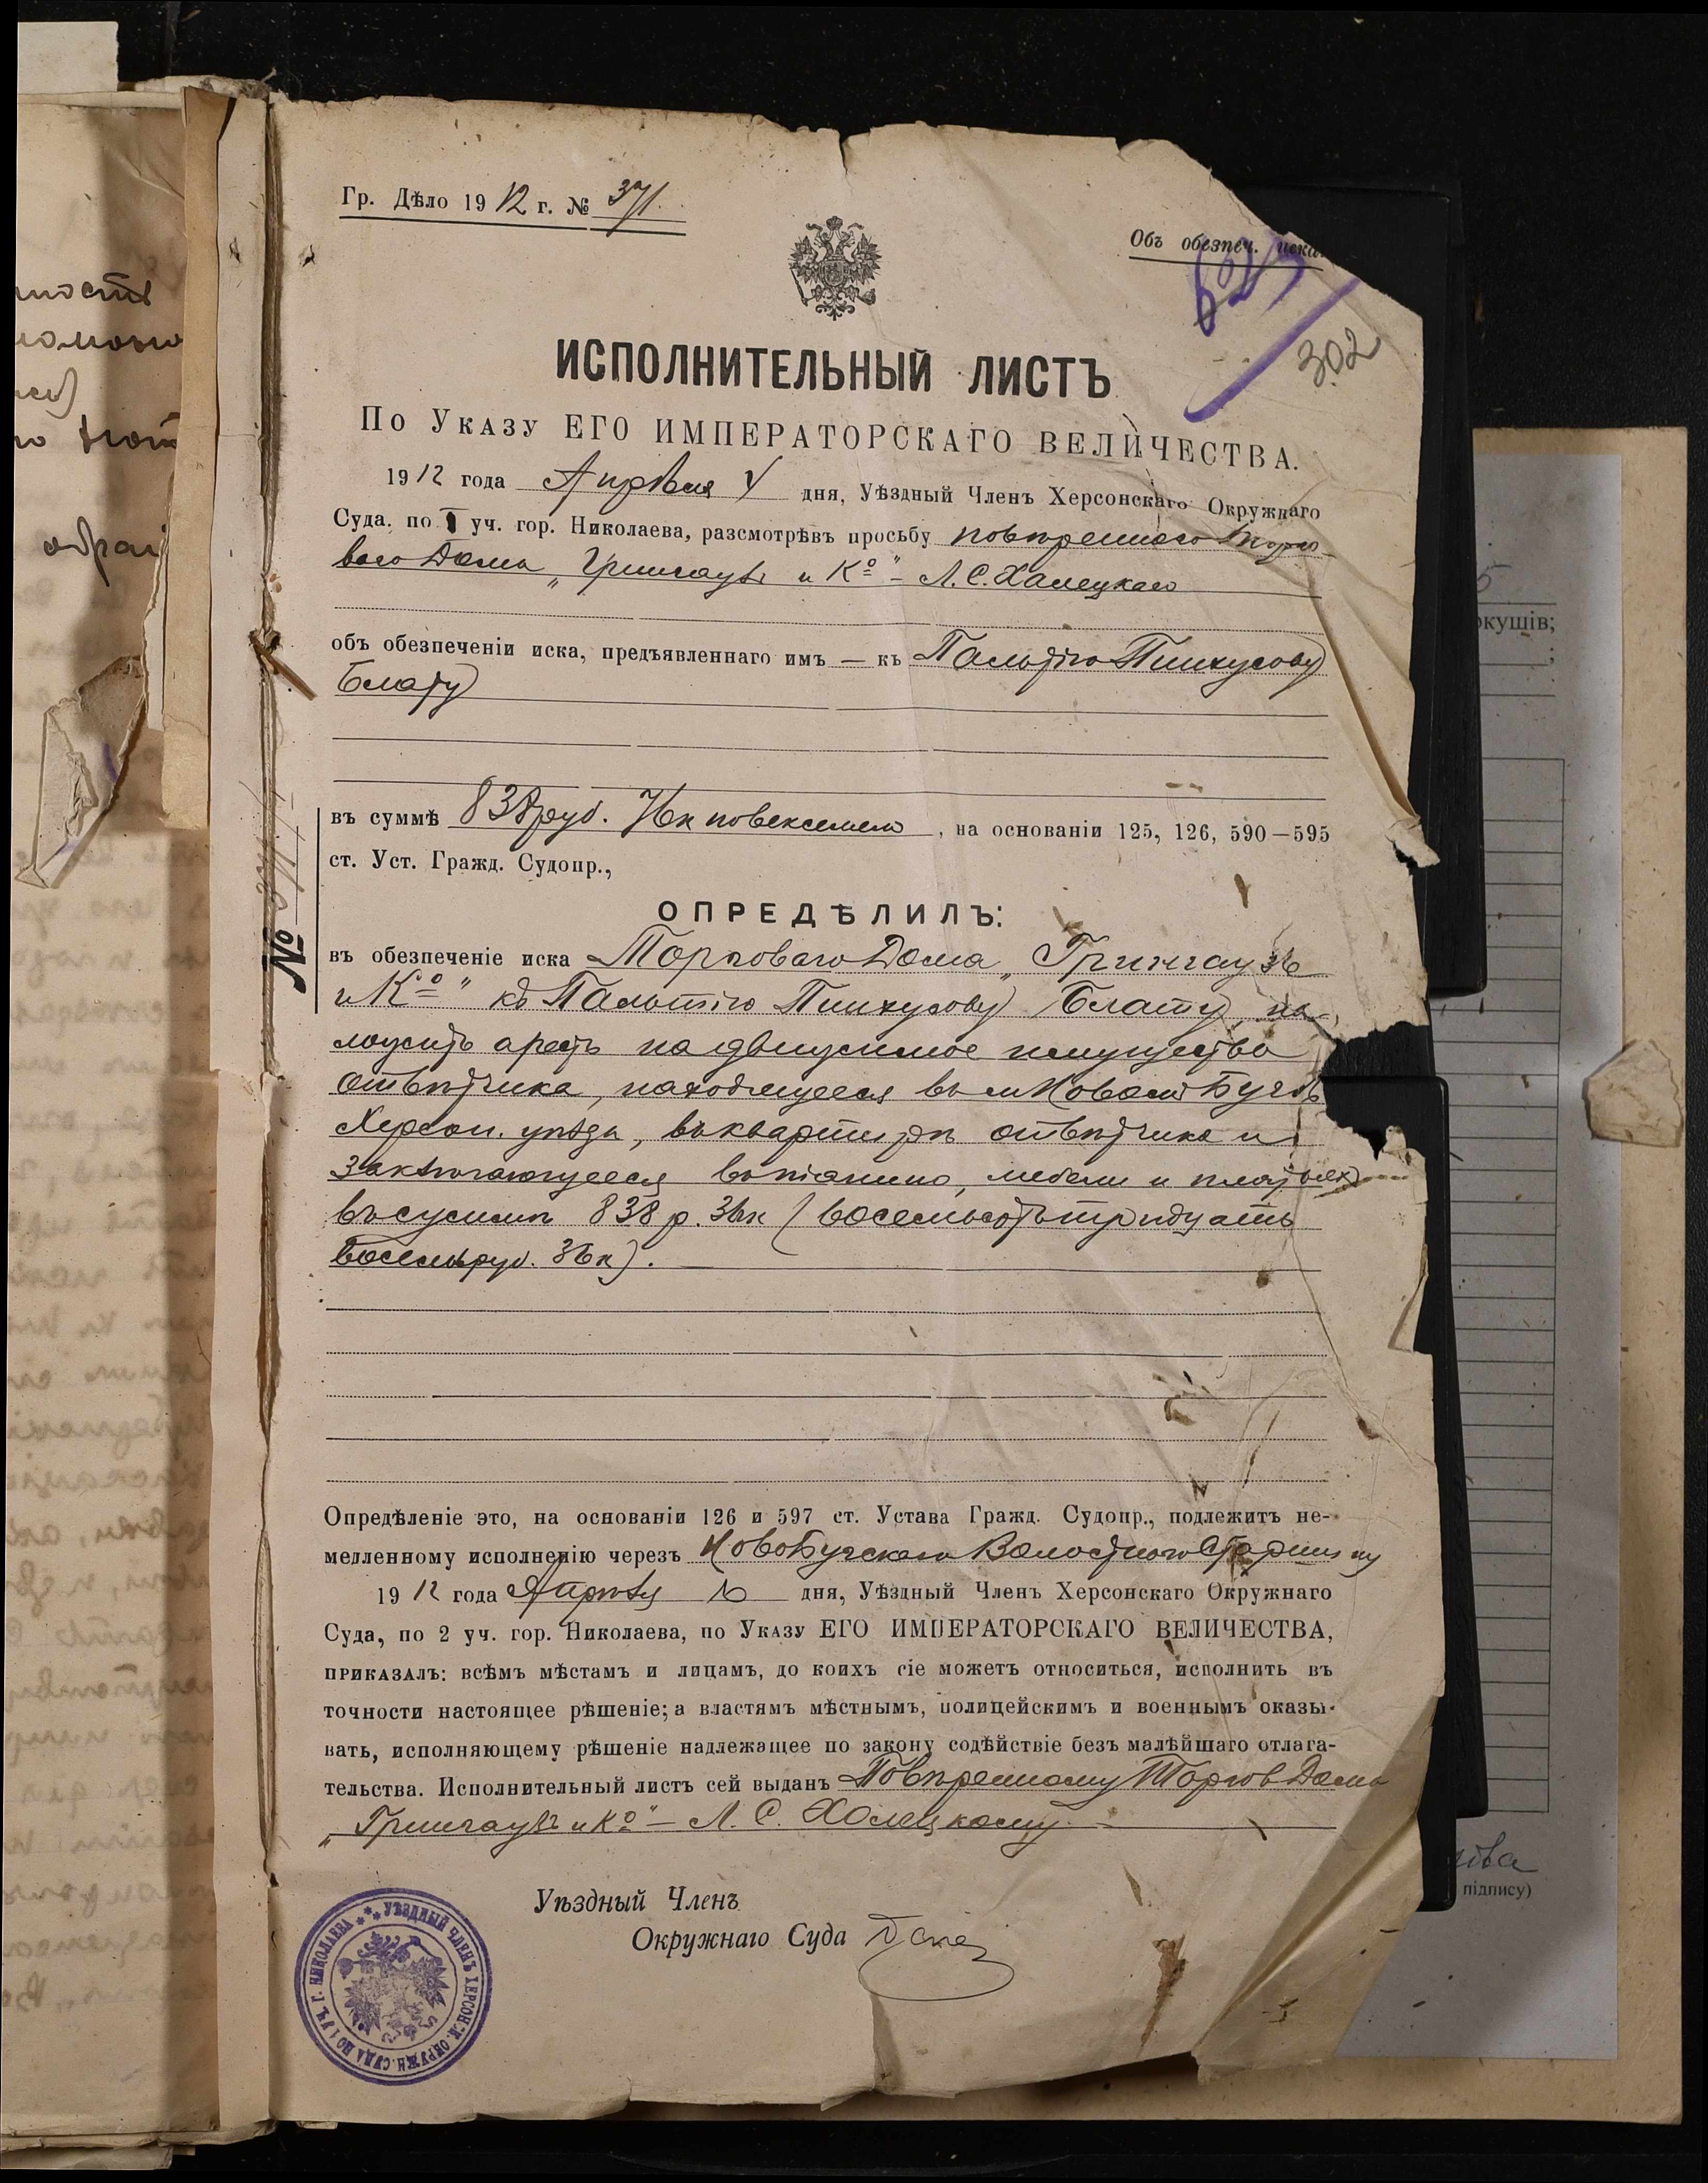 Гр. Дѣло 1912 г. № 371.
Объ обезпеч. иска
302
ИСПОЛНИТЕЛЬНЫЙ ЛИСТЪ
По Указу ЕГО ИМПЕРАТОРСКАГО ВЕЛИЧЕСТВА.
1912 года Апрѣля 4 дня, Уѣздный Членъ Херсонскаго Окружнаго
Суда, по 1 уч. гор. Николаева, разсмотрѣвъ просьбу повѣреннаго Торго-
ваго Дома „Грингаузъ и Кº“ – Л. С. Халецкаго
объ обезпеченіи иска, предъявленнаго имъ — къ Пальтію Пинхусову
Блату
въ суммѣ 838 руб. 36 к по векселю, на основаніи 125, 126, 590—595
ст. Уст. Гражд. Судопр.,
№ 371
ОПРЕДѢЛИЛЪ:
въ обезпеченіе иска Торговаго Дома „Грингаузъ
и Кº“ къ Пальтію Пинхусову Блату, на-
ложить арестъ на движимое имущество
отвѣтчика, находящееся въ м Новомъ Бугѣ
Херсон. уѣзда, въ квартирѣ отвѣтчика и
заключающееся въ піанино, мебели и платьех
въ суммѣ 838 р. 36 к (восемьсотъ тридцать
восемь руб. 36 к).
Опредѣленіе это, на основаніи 126 и 597 ст. Устава Гражд. Судопр., подлежитъ не-
медленному исполненію черезъ НовоБугскаго Волостного Старшину
1912 года Апрѣля дня, Уѣздный Членъ Херсонскаго Окружнаго
Суда, по 2 уч. гор. Николаева, по Указу ЕГО ИМПЕРАТОРСКАГО ВЕЛИЧЕСТВА,
ПРИКАЗАЛЪ: всѣмъ мѣстамъ и лицамъ, до коихъ сіе можетъ относиться, исполнить въ
точности настоящее рѣшеніе; а властямъ мѣстнымъ, полицейскимъ и военнымъ оказы-
вать, исполняющему рѣшеніе надлежащее по закону содѣйствіе безъ малѣйшаго отлага-
тельства. Исполнительный листъ сей выданъ Повѣренному Торгов Дома
„Грингаузъ и Кº“ – Л. С. Халецкому.
Уѣздный Членъ
Окружнаго Суда
УѢЗДНЫЙ ЧЛЕНЪ ХЕРСОН. ОКРУЖН. СУДА ПО 1 УЧ. Г. НИКОЛАЕВА
підпису)